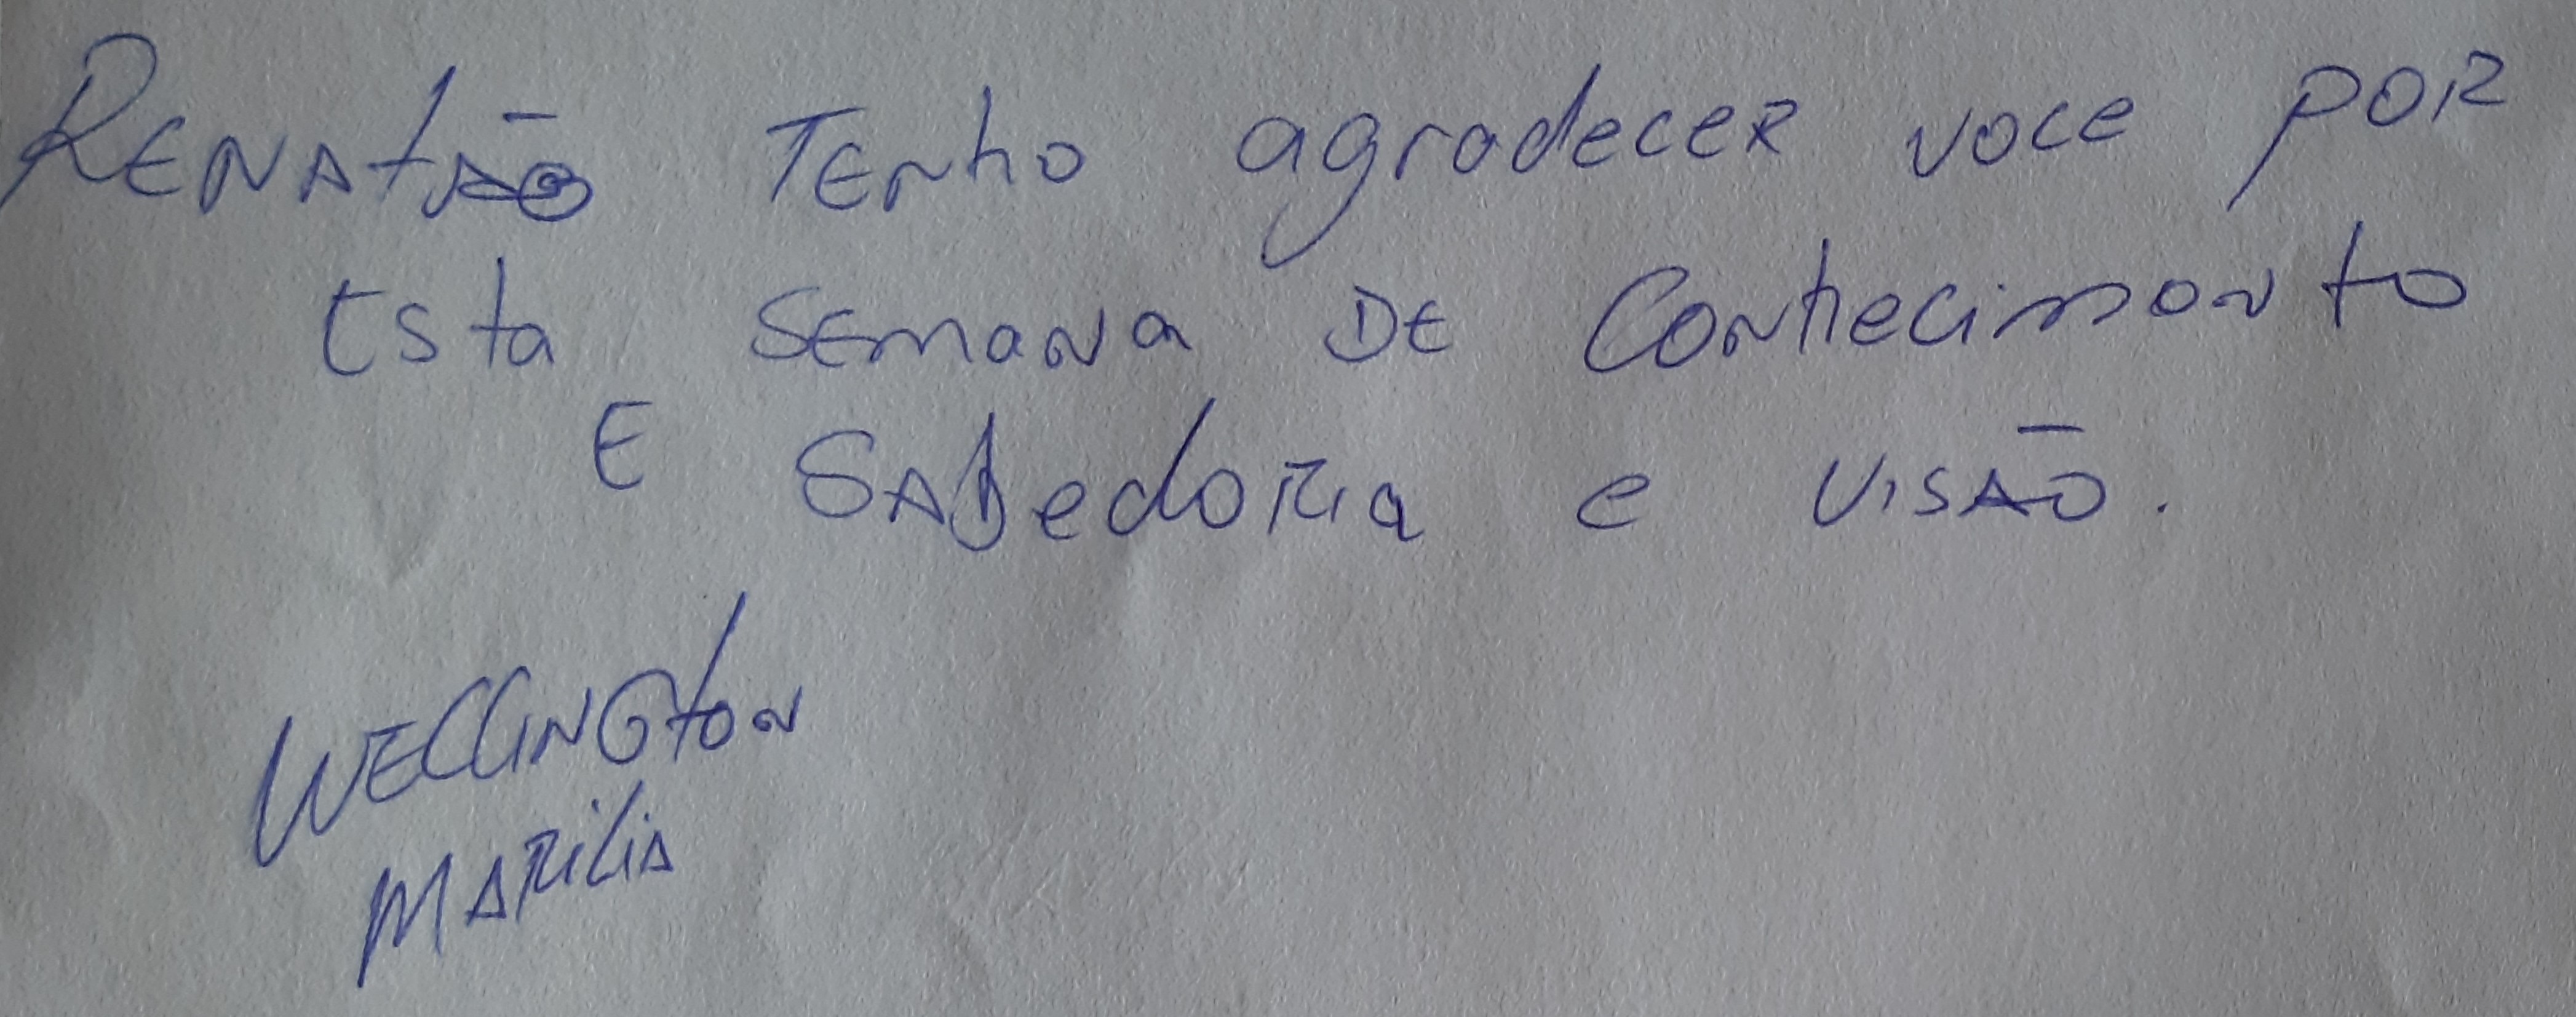 RENATÃO TENho agradeceR voce poR
Esta SEmana DE Conhecimento
E SABedoRia e VISÃO.
WELLINGtoN
MARILIA